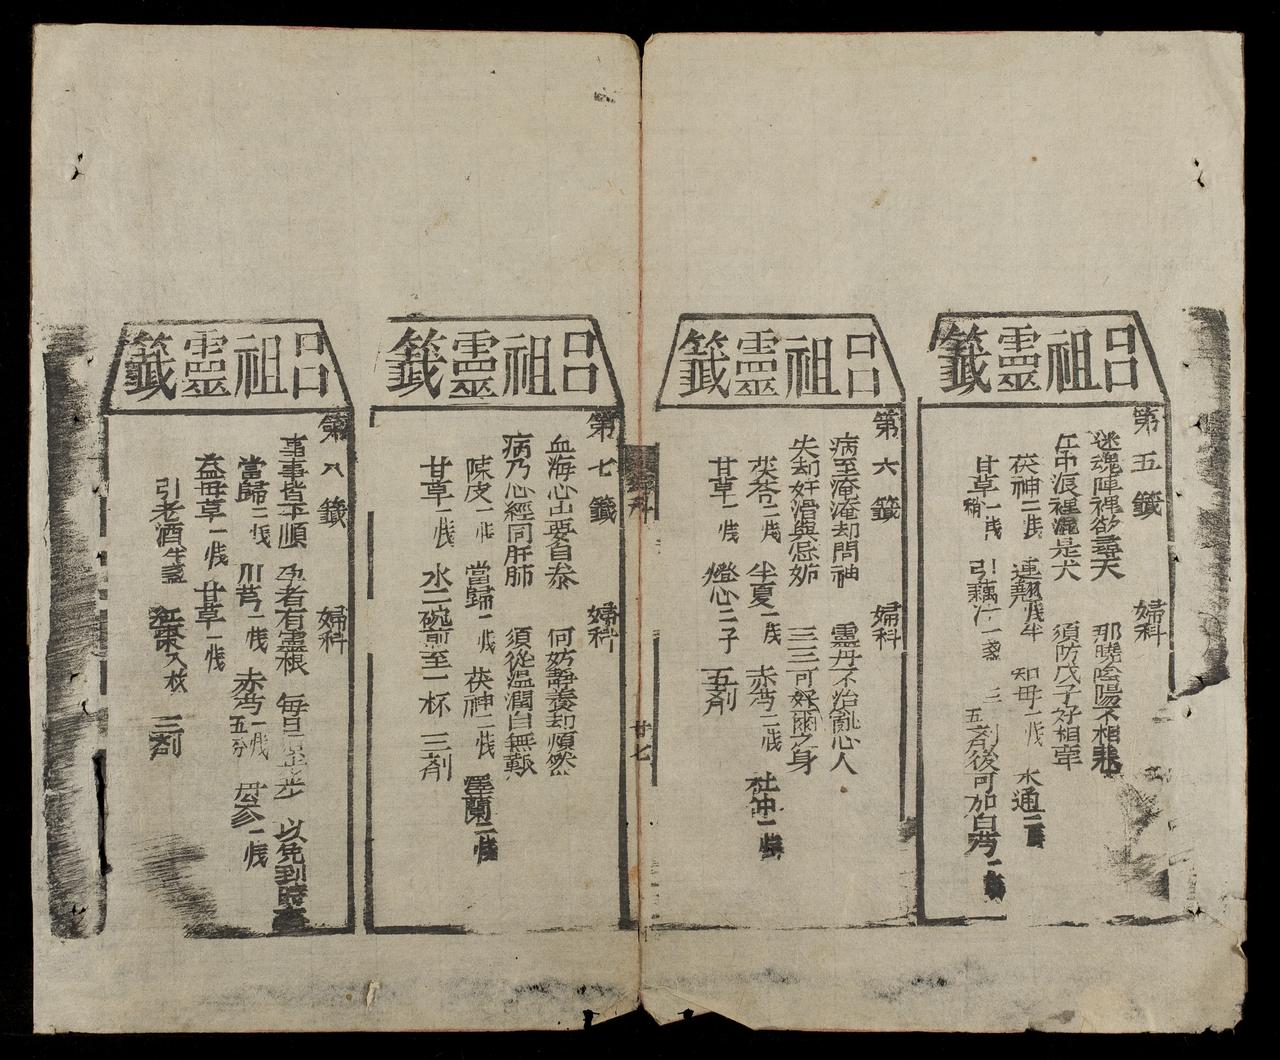 呂祖靈籤
第五籤 婦科
迷魂陣裡欲尋天 那曉陰陽不相
午中浪裡還是犬 須防戊子好相牽
茯神二戔 連翹戔半 知母一戔 木通
甘草一戔 稍 引藕汁一盞 三五剤後可加白芍一
呂祖靈籤
第六籤 婦科
病至淹淹却問神 靈丹不治亂心人
失却奸滑與忌妒 三三可好爾之身
茯苓二戔 半夏一戔 赤芍二戔 杜仲二戔
甘草一戔 燈心二子 五剤
婦科
廿七
呂祖靈籤
第七籤 婦科
血海心山要自泰 何妨靜養却煩然
病乃心經同肝肺 須從溫潤自無艱
陳皮一戔 當歸一戔 茯神二戔 澤蘭二戔
甘草一戔 水二碗煎至一杯 三剤
呂祖靈籤
第八籤 婦科
事事皆不順 孕者有靈根 每旦 步 以免到時
當歸二戔 川芎一戔 赤芍一戔五分 丹參一戔
益母草一戔 甘草一戔
引老酒半盞 紅棗八枚 三剤